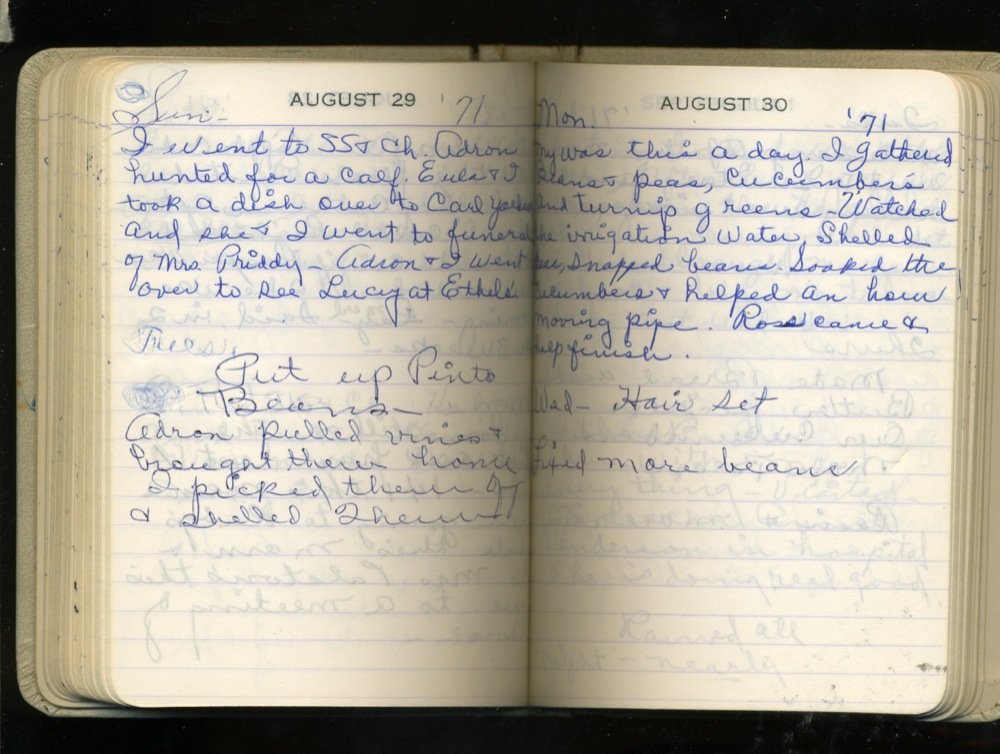 AUGUST 29 '71
Sun-
I went to SS & Ch. Adron
hunted for a calf. Eula & I
took a dish over to Carl
and she & I went to funeral
of Mrs. Priddy - Adron & I went
over to see Lucy at Ethels
Tues.
Put up Pinto
Beans-
Adron pulled vines &
brought them home
I picked them off
& shelled them
AUGUST 30
Mon. '71
My was this a day. I gathered
Beans & peas, Cucumbers
and turnip greens - Watched
the irrigation water, Shelled
snapped beans. Soaked the
cucumbers & helped an hour
moving pipe. Ross came &
help finish.
Wed- Hair Set
Fixed more beans